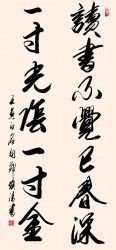 讀書不覺已春深
一寸光陰一寸金